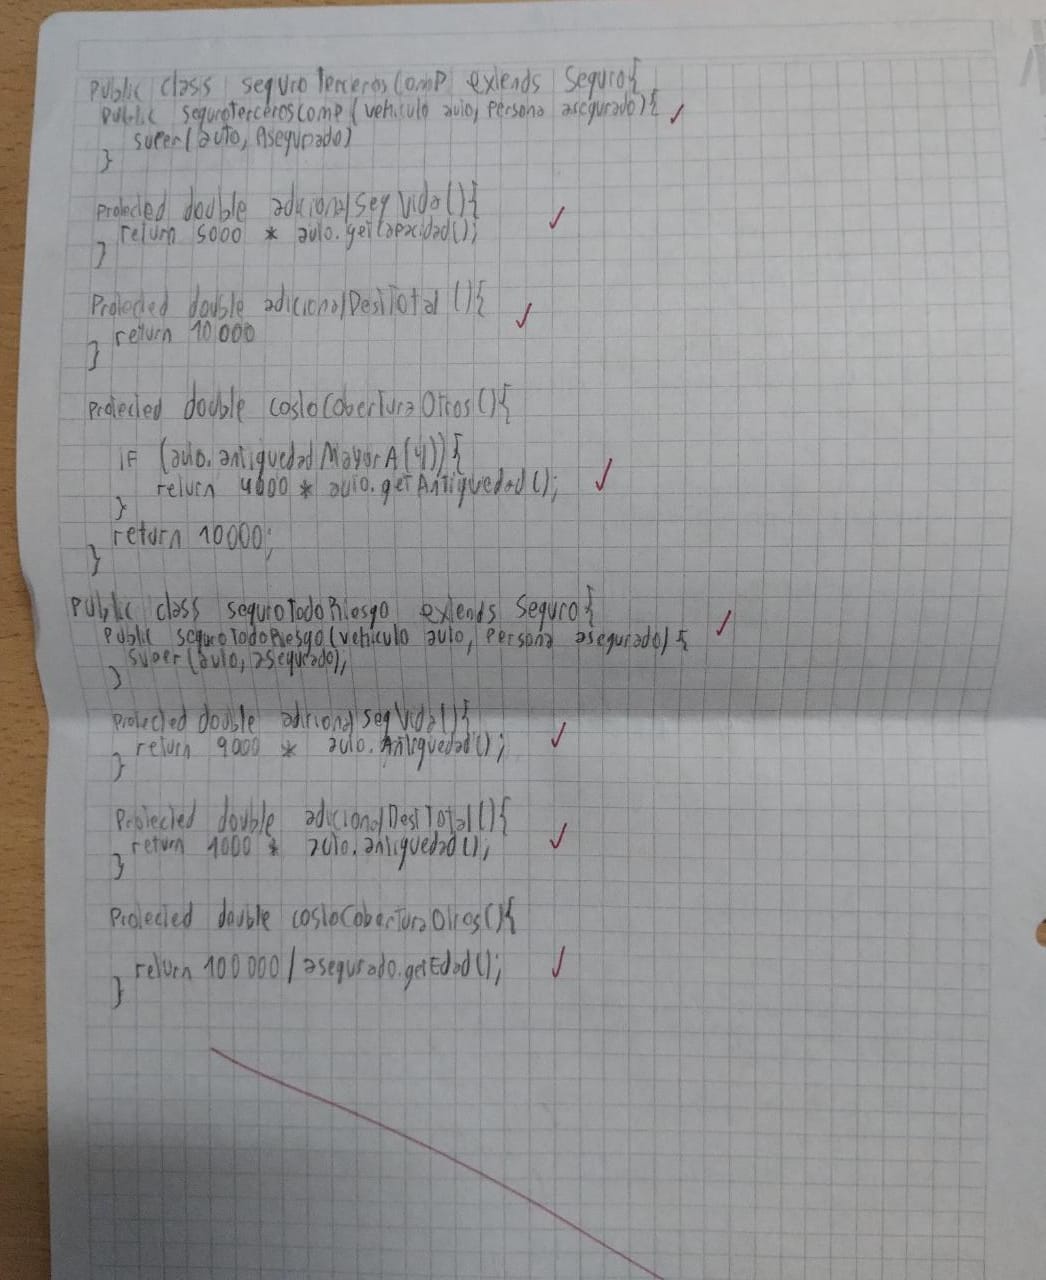 Public class seguroTercerosComp extends Seguro{
Public seguroTercerosComp (vehiculo auto, Persona asegurado){
super(auto, Asegurado)
}
Protected double adicionalSegVida(){
return 5000 * auto.getCapacidad();
}
Protected double adicionalDestTotal (){
return 10 000
}
Protected double costoCoberturaOtros(){
if (auto.antiguedadMayorA(4)){
return 4000 * auto.getAntiguedad();
}
return 10000;
}
Public class seguroTodoRiesgo extends Seguro{
Public seguroTodoRiesgo(vehiculo auto, Persona asegurado) {
super(auto, asegurado);
}
Protected double adicionalSegVida(){
return 9000 * auto.Antiguedad();
}
Protected double adicionalDestTotal(){
return 1000 * auto.antiguedad();
}
Protected double costoCoberturaOtros(){
return 100 000 / asegurado.getEdad();
}